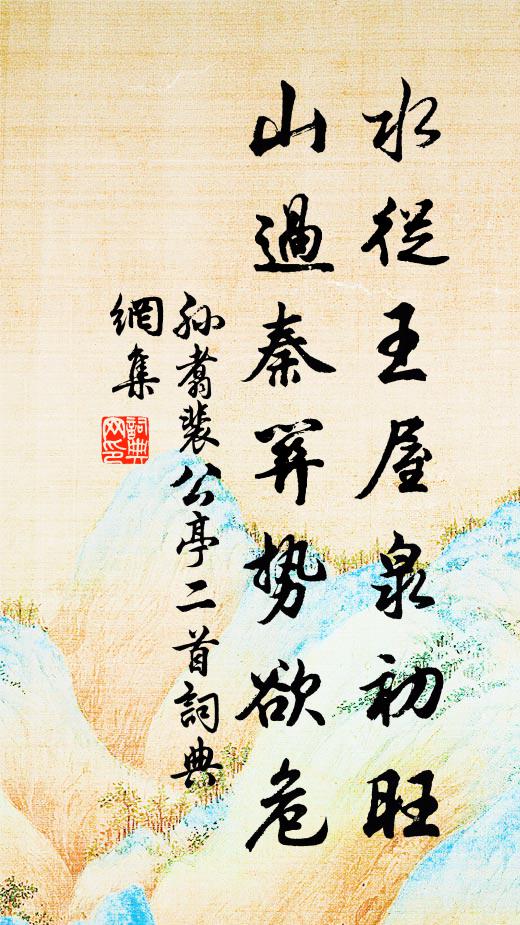 水從王屋泉初旺
山過秦關势欲危
孙翥裴公亭二首詞典
網集
詞典
网印